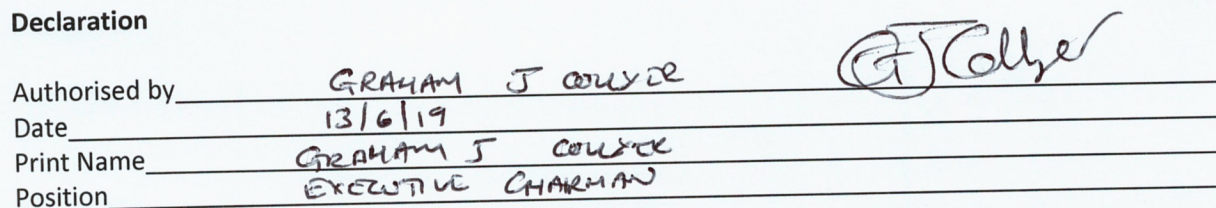 Declaration
Authorised by GRAHAM J COLLYER GJ Collyer
Date 13/6/19
Print Name GRAHAM J COLLYER
Position EXECUTIVE CHARMAN